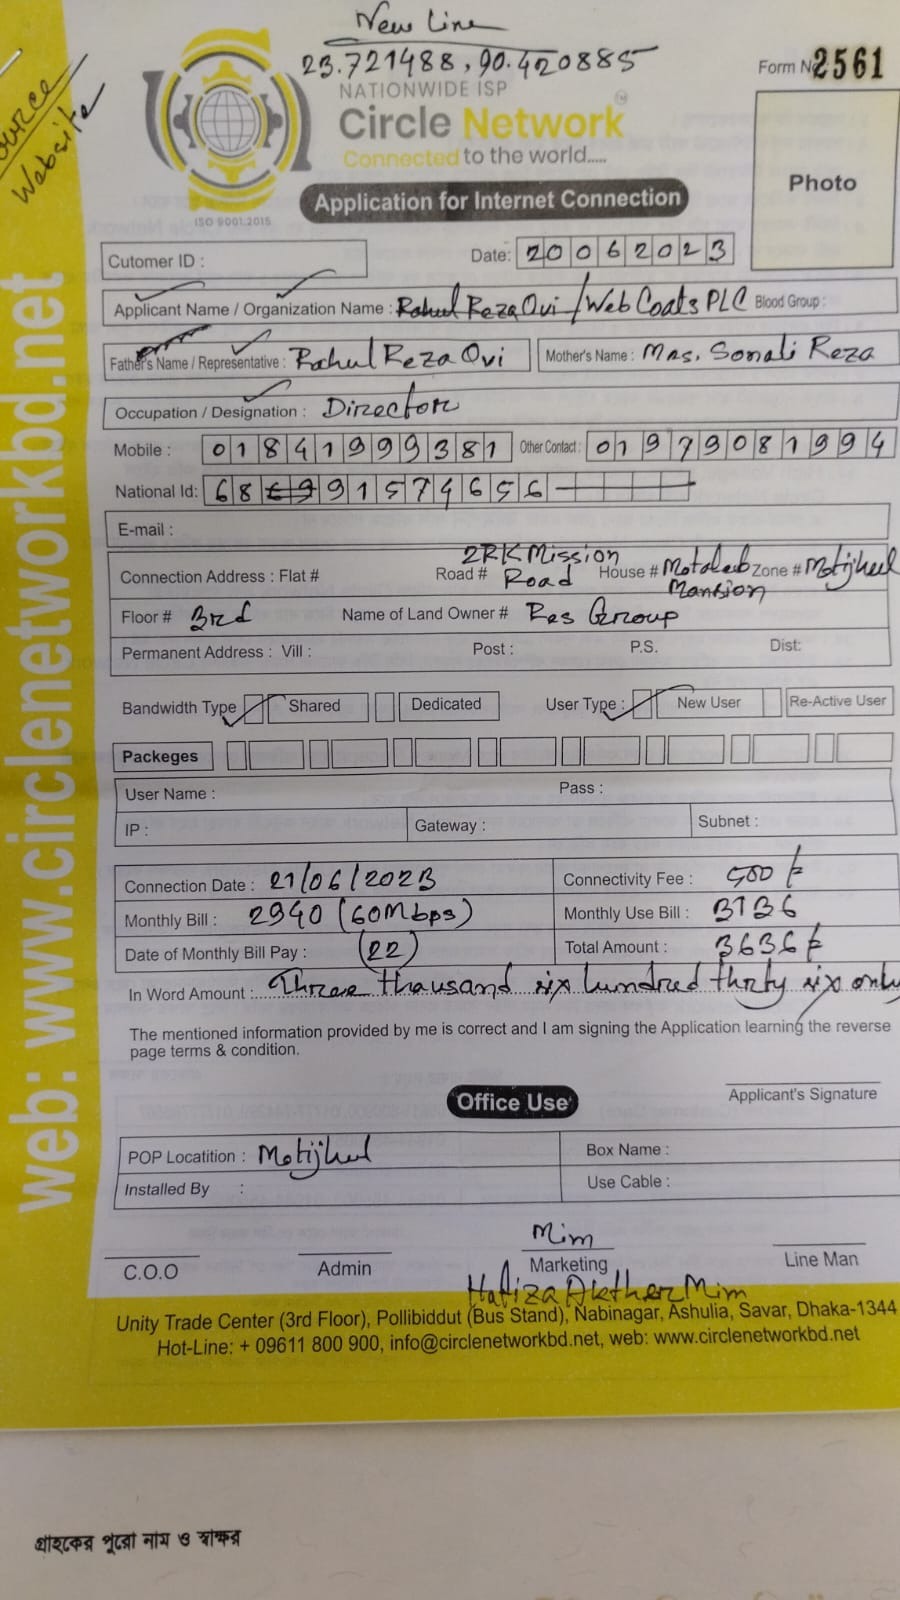 New Line
23.721488, 90.420885
Source
Website
Form No 2561
NATIONWIDE ISP
Circle Network
TM
Connected to the world.....
ISO 9001:2015
Application for Internet Connection
Photo
web: www.circlenetworkbd.net
Cutomer ID :
Date: 20062023
Applicant Name / Organization Name : Rahul Reza Ovi / Web Coats PLC Blood Group :
Father's Name / Representative : Rahul Reza Ovi Mother's Name : Mrs. Sonali Reza
Occupation / Designation : Director
Mobile : 01841999381 Other Contact : 01979081994
National Id: 68 9915746 56
E-mail :
Connection Address : Flat # Road # 2RK Mission Road House # Motaleb Mansion Zone # Motijheel
Floor # 3rd Name of Land Owner # Res Group
Permanent Address : Vill : Post : P.S. Dist:
Bandwidth Type Shared Dedicated User Type : New User Re-Active User
Packeges
User Name : Pass :
IP : Gateway : Subnet :
Connection Date : 21/06/2023 Connectivity Fee : 500 /-
Monthly Bill : 2940 (60Mbps) Monthly Use Bill : 3136
Date of Monthly Bill Pay : (22) Total Amount : 3636 /-
In Word Amount : Three thausand six hundred thirty six only
The mentioned information provided by me is correct and I am signing the Application learning the reverse
page terms & condition.
Applicant's Signature
Office Use
POP Locatition : Motijheel Box Name :
Installed By : Use Cable :
Mim
C.O.O Admin Marketing Line Man
Hafiza Akther Mim
Unity Trade Center (3rd Floor), Pollibiddut (Bus Stand), Nabinagar, Ashulia, Savar, Dhaka-1344
Hot-Line: + 09611 800 900, info@circlenetworkbd.net, web: www.circlenetworkbd.net
গ্রাহকের পুরো নাম ও স্বাক্ষর